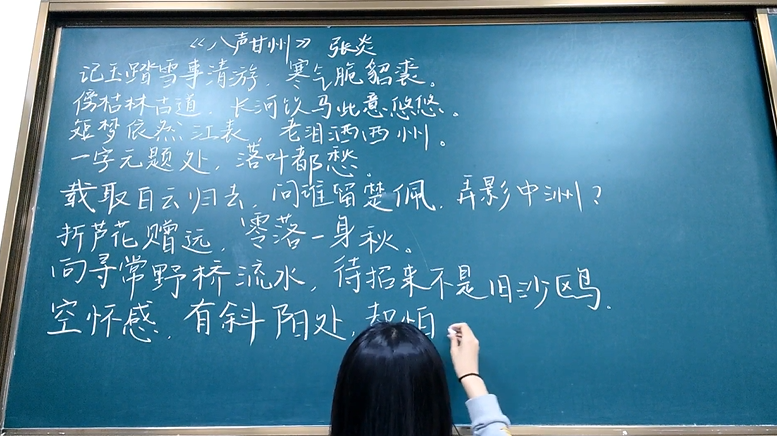 《八声甘州》 张炎
记玉踏雪事清游，寒气脆貂裘。
傍枯林古道，长河饮马此意悠悠。
短梦依然江表，老泪洒西州。
一字无题处，落叶都愁。
载取白云归去，问谁留楚佩，弄影中洲？
折芦花赠远，零落一身秋。
向寻常野桥流水，待招来不是旧沙鸥.
空怀感，有斜阳处，却怕